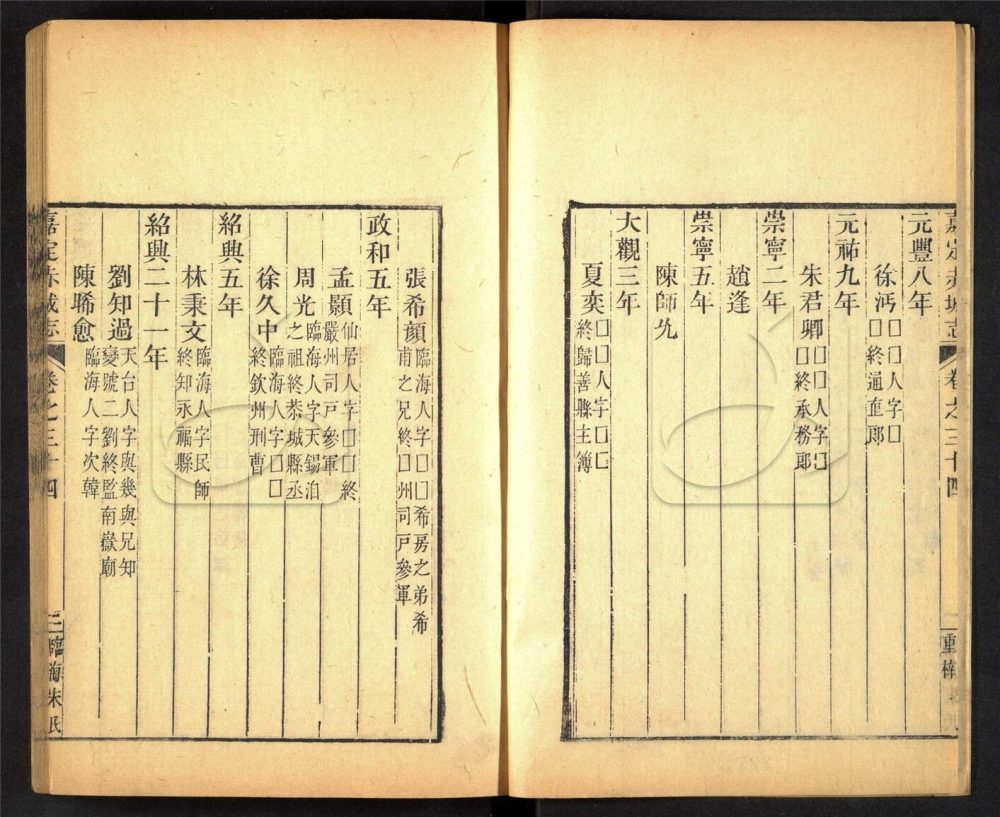 嘉定赤城志 卷之三十四 二 重梓
元豐八年
徐沔 □□人字□
□終通直郎
元祐九年
朱君卿 □□人字□
□終承務郎
崇寧二年
趙逢
崇寧五年
陳師
大觀三年
夏奕 □□人字□□
終歸善縣主簿
張希顔 臨海人字□□希房之弟希
甫之兄終□州司戶參軍
政和五年
孟顥 仙居人字□□終
嚴州司戶參軍
周光 臨海人字天錫洎
之祖終恭城縣丞
徐久中 臨海人字□□
終欽州刑曹
紹興五年
林秉文 臨海人字民師
終知永福縣
紹興二十一年
劉知過 天台人字與幾與兄知
變號二劉終監南嶽廟
陳晞愈 臨海人字次韓
嘉定赤城志 卷之三十四 三 臨海朱氏